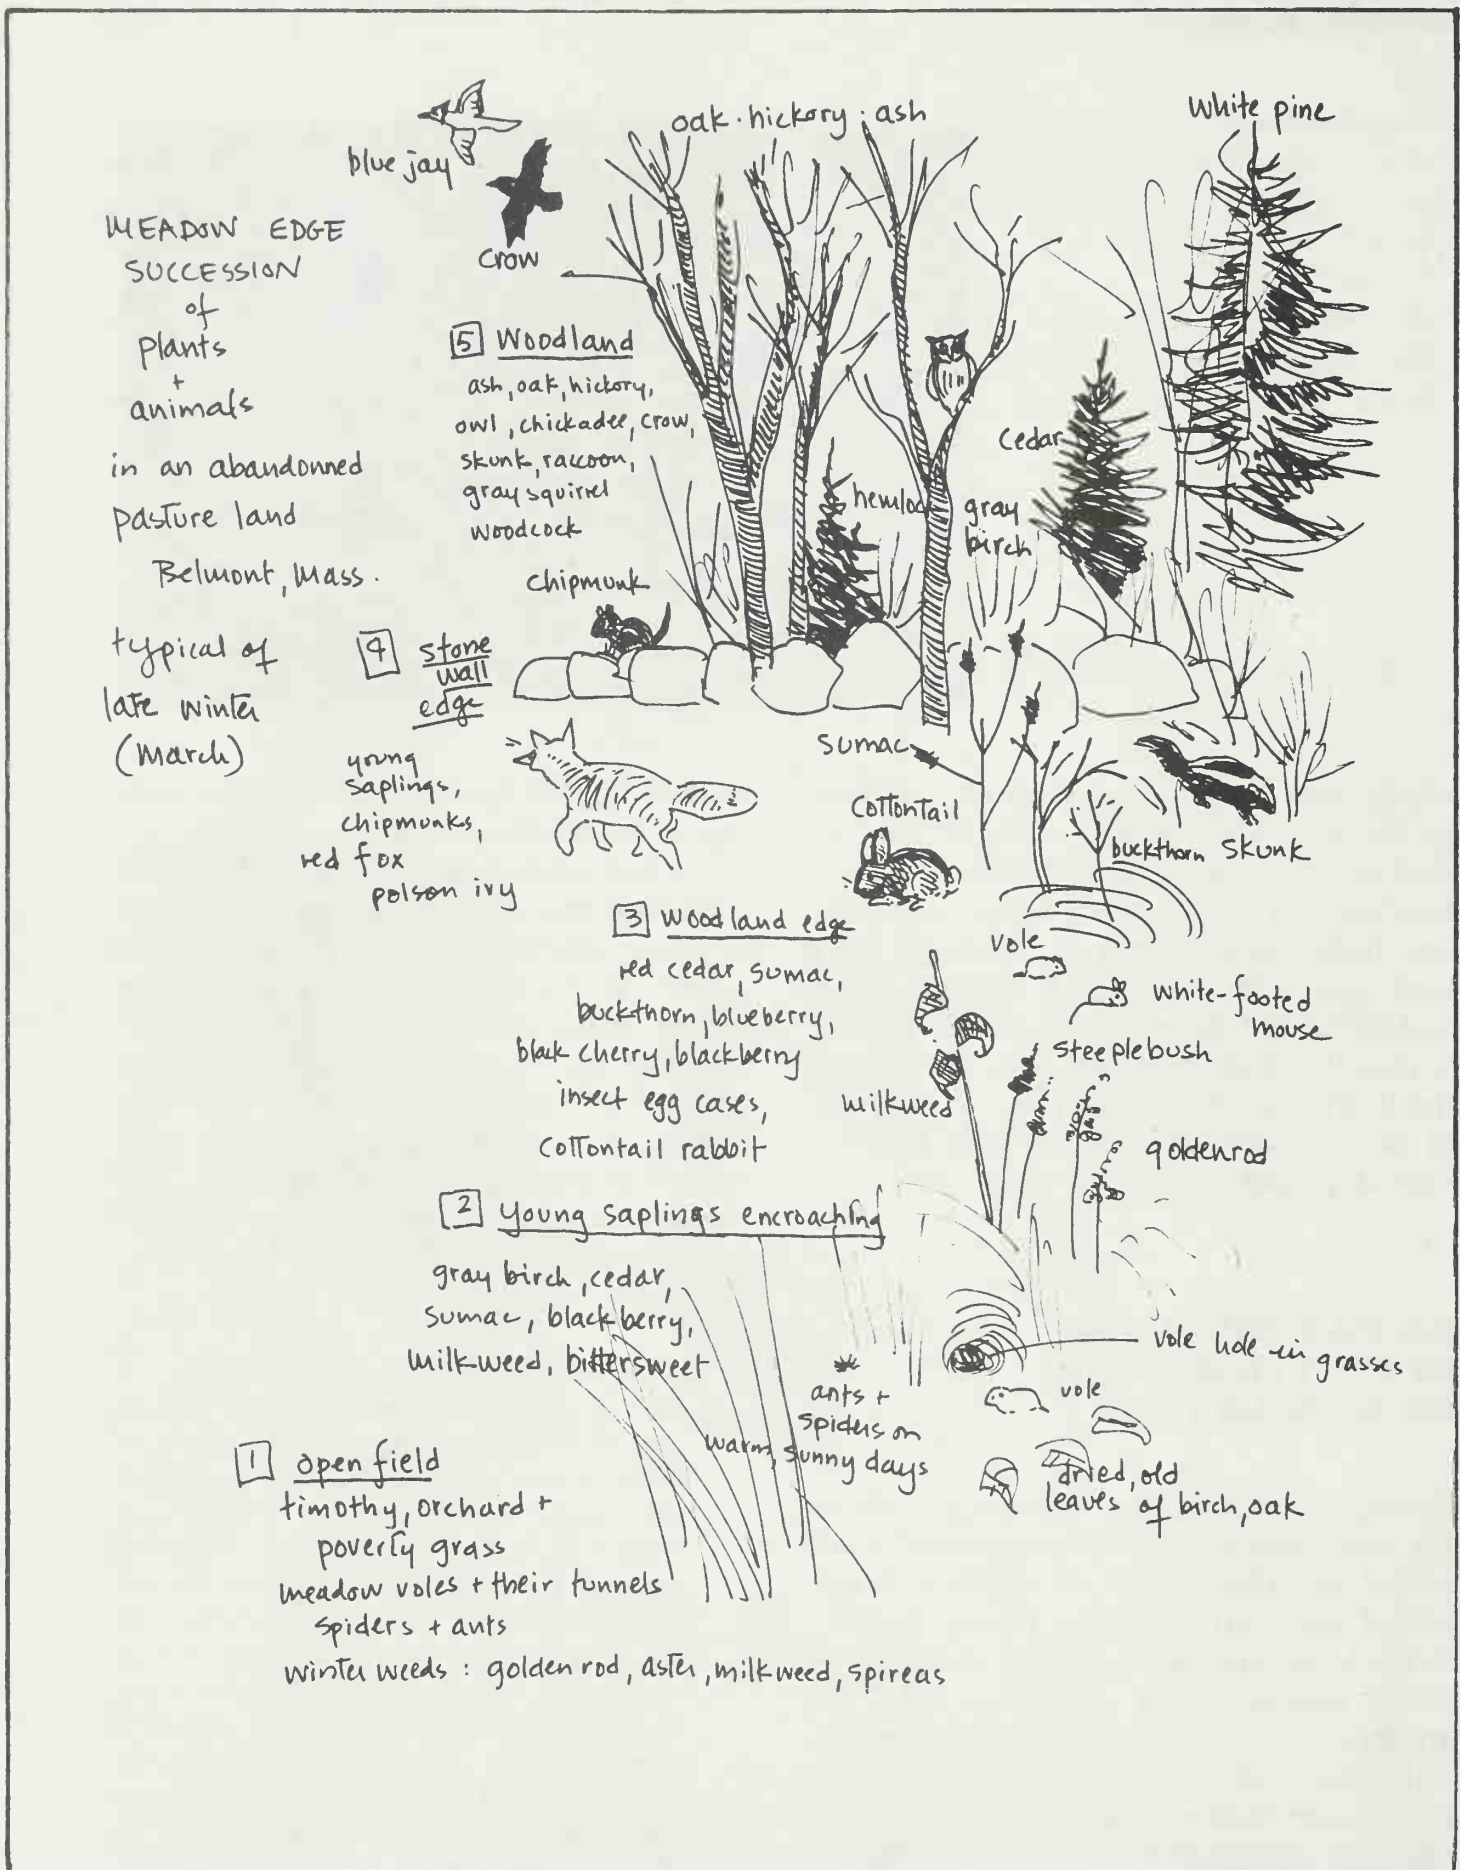 blue jay
crow
oak · hickory · ash
white pine
MEADOW EDGE
SUCCESSION
of
plants
+
animals
in an abandonned
pasture land
Belmont, Mass.
typical of
late winter
(March)
5 Woodland
ash, oak, hickory,
owl, chickadee, crow,
skunk, raccoon,
gray squirrel
woodcock
cedar
hemlock
gray
birch
chipmunk
4 stone
wall
edge
young
saplings,
chipmunks,
red fox
poison ivy
sumac
cottontail
buckthorn
skunk
3 Woodland edge
red cedar, sumac,
buckthorn, blueberry,
black cherry, blackberry
insect egg cases,
cottontail rabbit
vole
white-footed
mouse
steeplebush
milkweed
goldenrod
2 young saplings encroaching
gray birch, cedar,
sumac, blackberry,
milkweed, bittersweet
vole hole in grasses
vole
ants +
spiders on
warm, sunny days
dried, old
leaves of birch, oak
1 open field
timothy, orchard +
poverty grass
meadow voles + their tunnels
spiders + ants
winter weeds : goldenrod, aster, milkweed, spireas